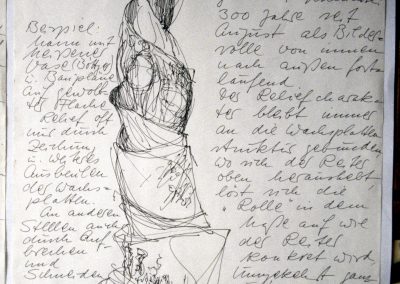 Beispiel:
Mann mit
Meißener
Vase (Böttger)
u. Baupläne
auf gewölb-
ter Fläche
Relief oft
nur durch
Zeichnung
u. weiteres
Ausbeulen
der Wachs-
platten.
An anderen
Stellen auch
durch Auf-
brechen
und
Schneiden
300 Jahre seit
August als Bilder-
rolle von innen
nach außen fort-
laufend
Der Reliefcharak-
ter bleibt immer
an die Wachsplatten
struktur gebunden
wo sich der Reiter
oben herausstellt
löst sich die
"Rolle" in dem
Maße auf wie
der Reiter
konkret wird.
Umgekehrt ganz